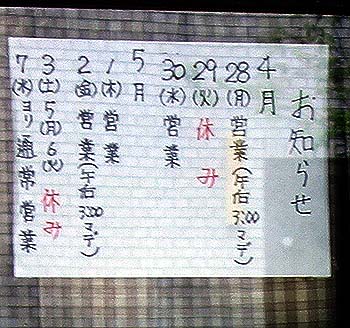 お知らせ
4月
28(月)営業(午后3:00マデ)
29(火)休み
30(水)営業
5月
1(木)営業
2(金)営業(午后3:00マデ)
3(土)5(月)6(火)休み
7(水)ヨリ通常営業